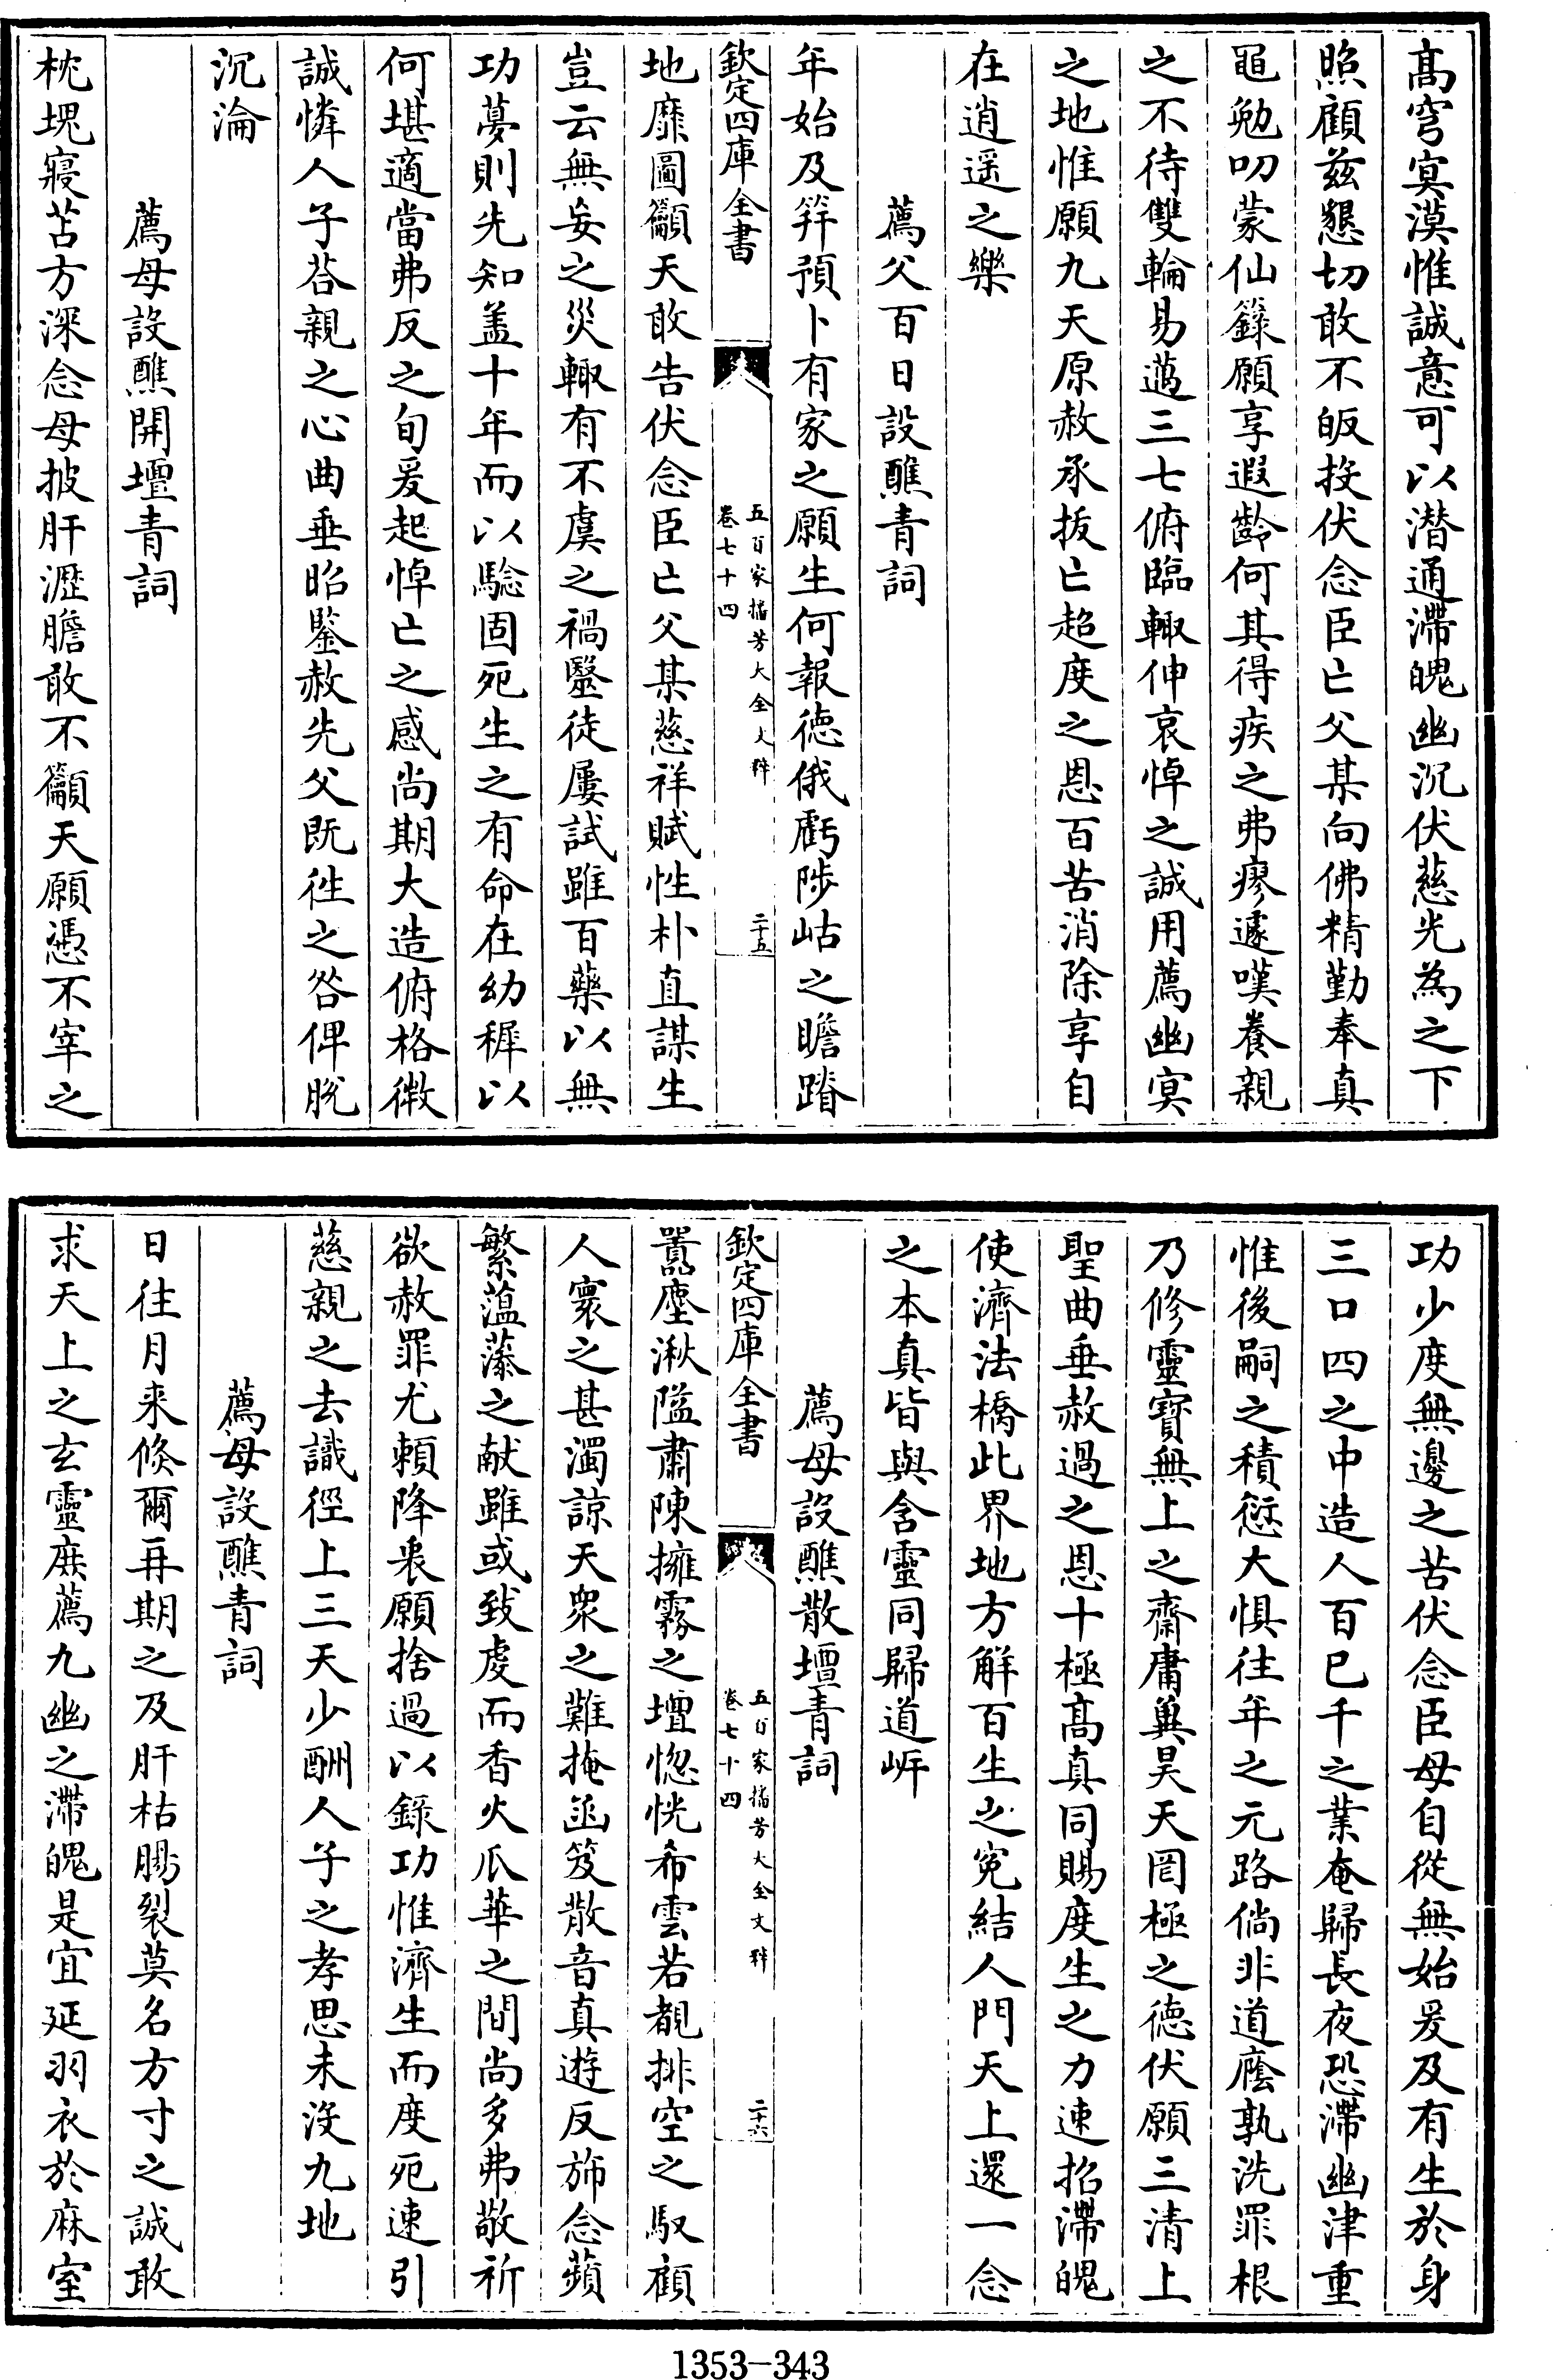 髙穹㝠漠惟誠意可以潛通滯魄幽沉伏慈光為之下
照顧兹懇切敢不皈投伏念臣亡父某向佛精勤奉真
黽勉叨蒙仙籙願享遐齡何其得疾之弗瘳遽嘆養親
之不待雙輪易邁三七俯臨輙伸哀悼之誠用薦幽㝠
之地惟願九天原赦承拔亡超度之恩百苦消除享自
在逍遥之樂
薦父百日設醮青詞
年始及筓預卜有家之願生何報徳俄虧陟岵之瞻踏
欽定四庫全書
五百家播芳大全文粹
卷七十四
二十五
地靡圖籲天敢告伏念臣亡父某慈祥賦性朴直謀生
豈云無妄之災輙有不虞之禍毉徒屢試雖百藥以無
功夢則先知盖十年而以騐固死生之有命在幼穉以
何堪適當弗反之旬爰起悼亡之感尚期大造俯格微
誠憐人子荅親之心曲垂昭鑒赦先父既徃之咎俾脱
沉淪
薦母設醮開壇青詞
枕塊寢苫方深念母披肝瀝膽敢不籲天願憑不宰之
功少度無邊之苦伏念臣母自從無始爰及有生於身
三口四之中造人百已千之業奄歸長夜恐滯幽津重
惟後嗣之積愆大懼往年之元路倘非道廕孰洗罪根
乃修靈寳無上之齋庸兾昊天罔極之德伏願三清上
聖曲垂赦過之恩十極髙真同賜度生之力速招滯魄
使濟法橋此界地方解百生之寃結人門天上還一念
之本真皆與含靈同歸道岸
薦母設醮散壇青詞
欽定四庫全書
五百家播芳大全文粹
卷七十四
二十六
嚚塵湫隘肅陳擁霧之壇惚恍希雲若覩排空之馭顧
人寰之甚濁諒天衆之難掩函笈散音真遊反斾念蘋
繁薀藻之献雖或致虔而香火瓜華之間尚多弗敬祈
欲赦罪尤頼降衷願捨過以錄功惟濟生而度死速引
慈親之去識徑上三天少酬人子之孝思未沒九地
薦母設醮青詞
日往月来倐爾再期之及肝枯腸裂莫名方寸之誠敢
求天上之玄靈庶薦九幽之滯魄是宜延羽衣於麻室
1353-343